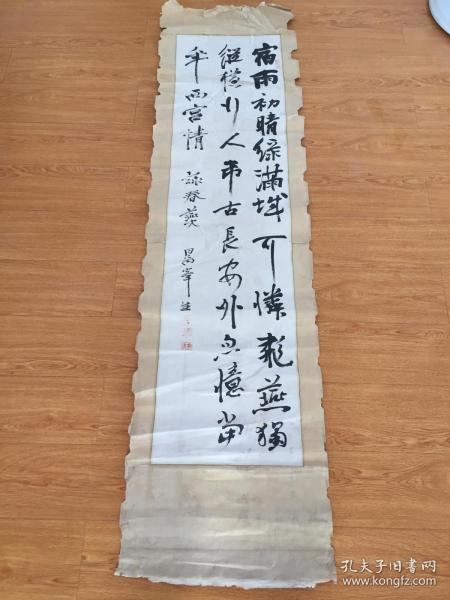 宿雨初晴綠滿城可憐乳燕獨
縱橫行人弔古長安外忽憶當
年西宮情 詠春燕
孔夫子旧书网
www.kongfz.com